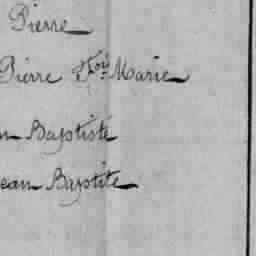 Pierre
Pierre Marie
n Baptiste
ean Baptite